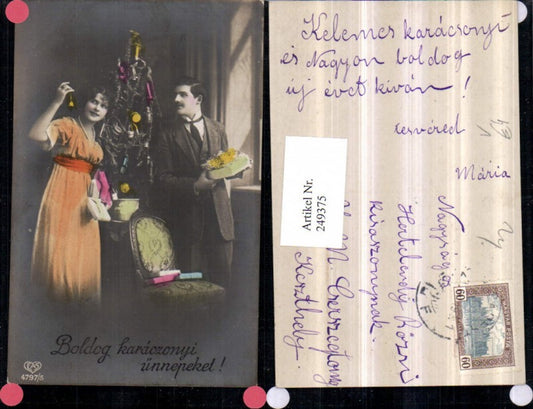 Boldog karáczonyi
ünnepeket!
4797/5
Kelemes karácsonyi
és Nagyon boldog
új évet kíván!
testvéred
Mária
Artikel Nr.
249375
Nagyságos
Rózsi
kisaszonynak
Keszthely
60
60